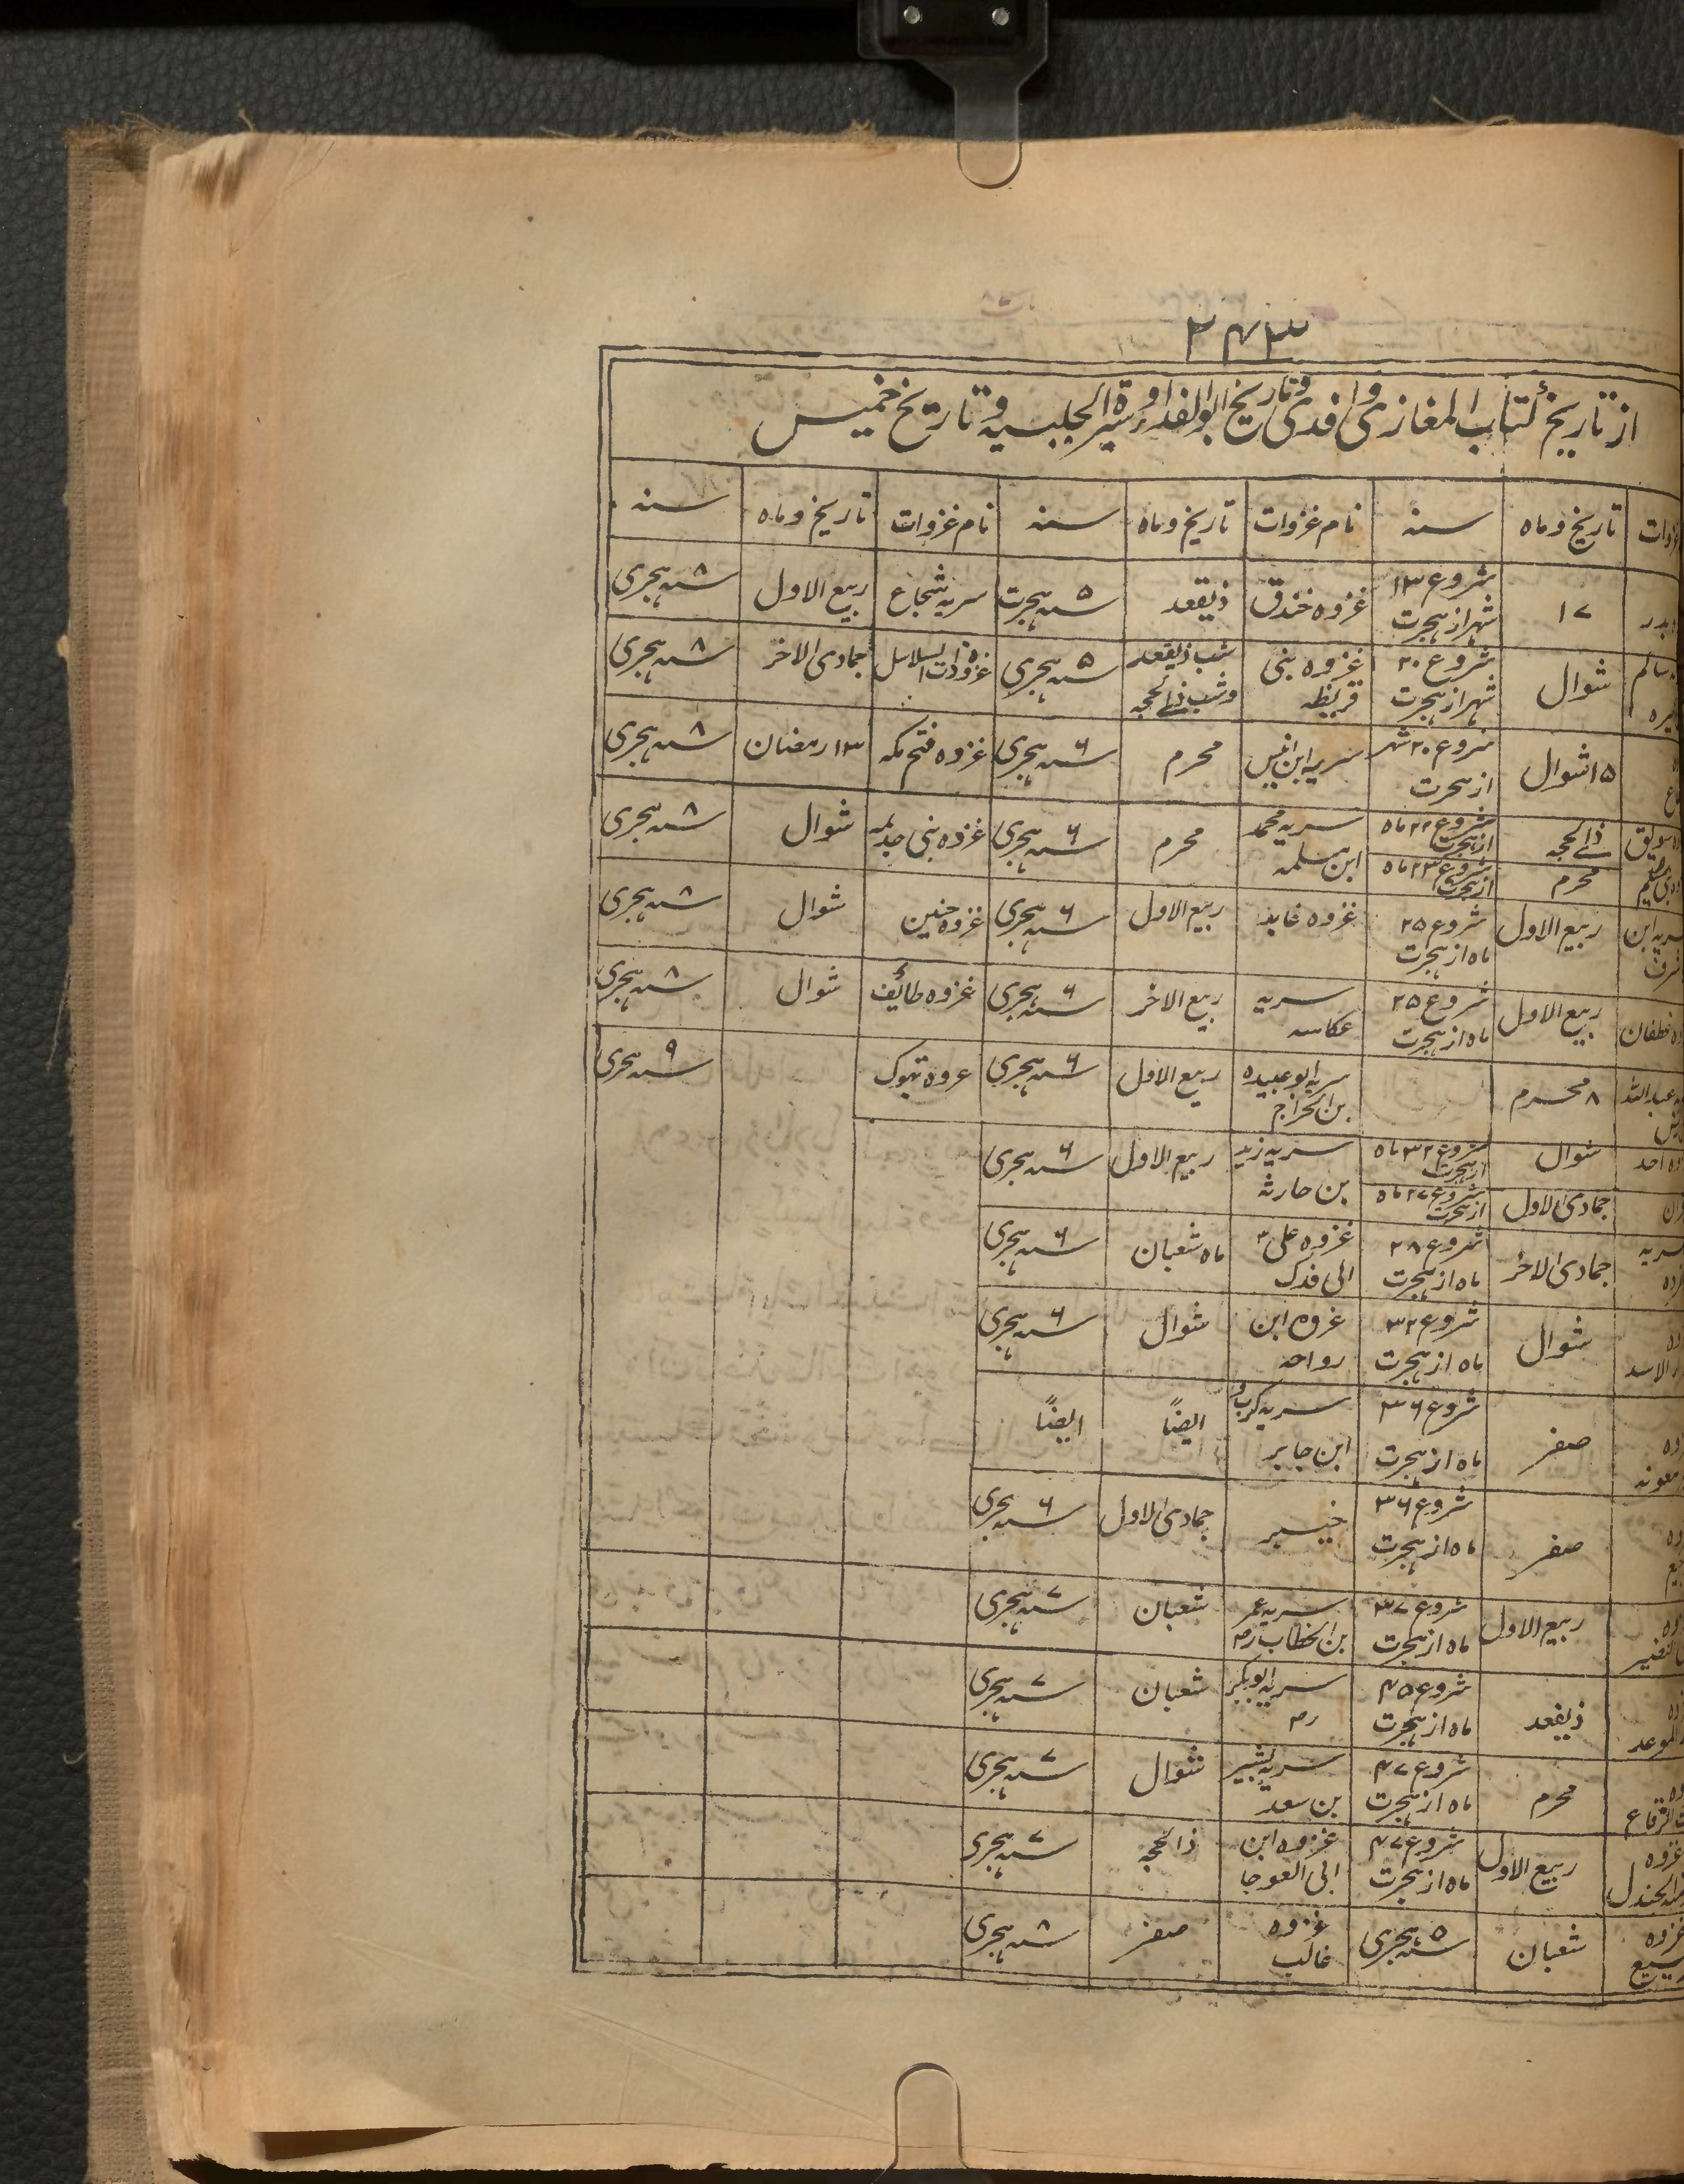 ۲۴۳
از تاریخ کتاب المغازی واقدی و تاریخ ابوالفدا و سیرة الحلبیه و تاریخ خمیس
تاریخ و ماه سنه نام غزوات تاریخ و ماه سنه نام غزوات تاریخ و ماه سنه
بدر ۱۷ شروع ۱۳ شهر از هجرت غزوه خندق ذیقعد ۵ سنه هجرت سریه شجاع ربیع الاول ۸ سنه هجری
سالم شوال شروع ۲۰ شهر از هجرت غزوه بنی قریظه شب ذیقعد و شب ذی الحجه ۵ سنه هجری غزوه ذات السلاسل جمادی الاخر ۸ سنه هجری
۱۵ شوال شروع ۲۰ شهر از هجرت سریه ابن انیس محرم ۶ سنه هجری غزوه فتح مکه ۱۳ رمضان ۸ سنه هجری
سویق ذی الحجه شروع ۲۲ ماه از هجرت سریه محمد ابن مسلمه محرم ۶ سنه هجری غزوه بنی جذیمه شوال ۸ سنه هجری
محرم شروع ۲۳ ماه از هجرت
سریه ابن ربیع الاول شروع ۲۵ ماه از هجرت غزوه غابه ربیع الاول ۶ سنه هجری غزوه حنین شوال ۸ سنه هجری
غطفان ربیع الاول شروع ۲۵ ماه از هجرت سریه عکاسه ربیع الاخر ۶ سنه هجری غزوه طائف شوال ۸ سنه هجری
عبدالله ۸ محرم سریه ابو عبیده بن الجراح ربیع الاول ۶ سنه هجری غزوه تبوک ۹ سنه هجری
احد شوال شروع ۳۲ ماه از هجرت سریه زید بن حارثه ربیع الاول ۶ سنه هجری
جمادی الاول شروع ۲۷ ماه از هجرت
سریه جمادی الاخر شروع ۲۸ ماه از هجرت غزوه علی الی فدک ماه شعبان ۶ سنه هجری
الاسد شوال شروع ۳۲ ماه از هجرت غزوه ابن رواحه شوال ۶ سنه هجری
معونه صفر شروع ۳۶ ماه از هجرت سریه کرب ابن جابر ایضاً ایضاً
صفر شروع ۳۶ ماه از هجرت خیبر جمادی الاول ۶ سنه هجری
النضیر ربیع الاول شروع ۳۷ ماه از هجرت سریه عمر بن الخطاب رض شعبان ۷ سنه هجری
الموعد ذیقعد شروع ۴۵ ماه از هجرت سریه ابوبکر رض شعبان ۷ سنه هجری
الرقاع محرم شروع ۴۷ ماه از هجرت سریه بشیر بن سعد شوال ۷ سنه هجری
غزوه الجندل ربیع الاول شروع ۴۷ ماه از هجرت غزوه ابن الی العوجا ذالحجه ۷ سنه هجری
غزوه شعبان ۵ سنه هجری غزوه غالب صفر ۸ سنه هجری